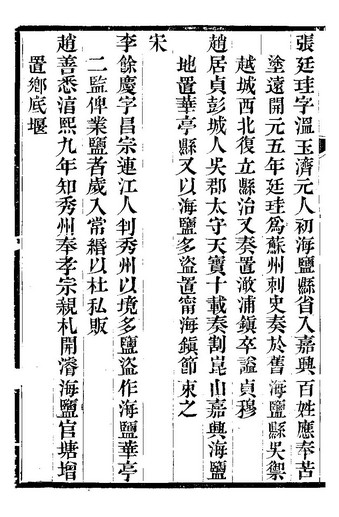 張廷珪字溫玉濟元人初海鹽縣省入嘉興百姓應奉苦
塗遠開元五年廷珪為蘇州刺史奏於舊海鹽縣吳禦
越城西北復立縣治又奏置澉浦鎮卒謚貞穆
趙居貞彭城人吳郡太守天寶十載奏割崑山嘉興海鹽
地置華亭縣又以海鹽多盜置甯海鎮節束之
宋
李餘慶字昌宗連江人判秀州以境多鹽盜作海鹽華亭
二監俾業鹽者歲入常緡以杜私販
趙善悉淯熙九年知秀州奉孝宗親札開濬海鹽官塘增
置鄉底堰